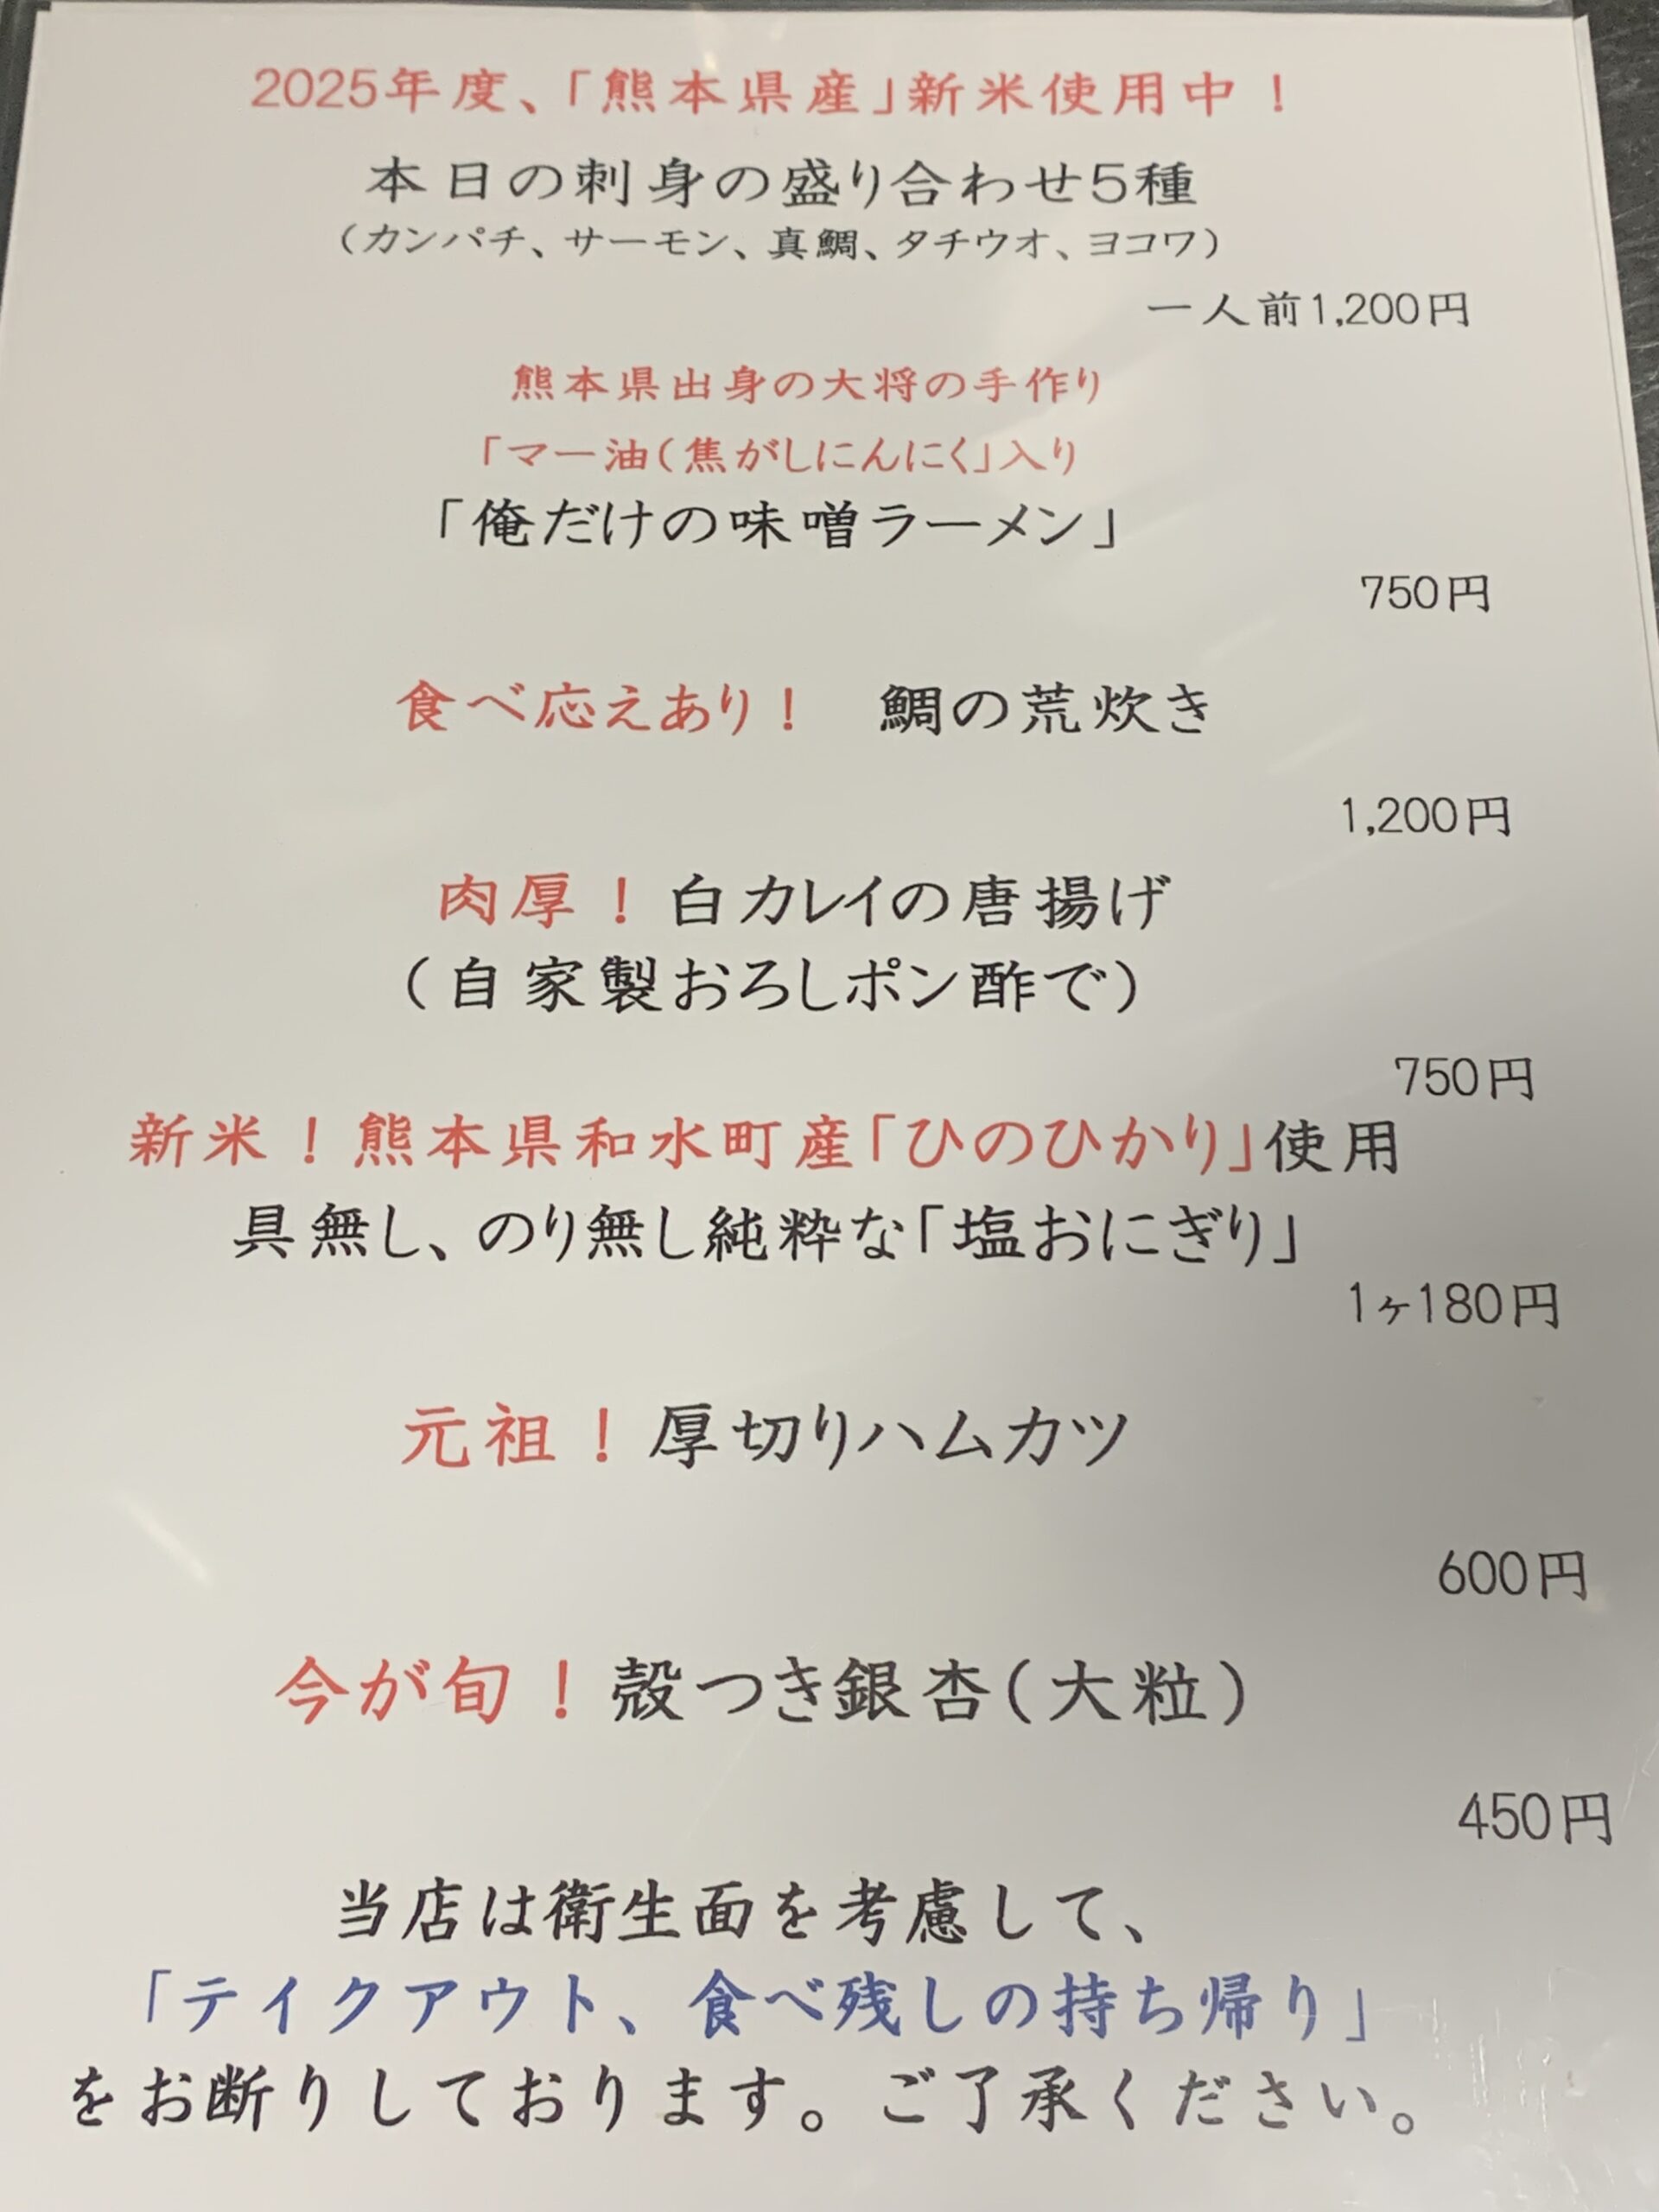 2025年度、「熊本県産」新米使用中！
本日の刺身の盛り合わせ5種
（カンパチ、サーモン、真鯛、タチウオ、ヨコワ）
一人前1,200円
熊本県出身の大将の手作り
「マー油（焦がしにんにく」入り
「俺だけの味噌ラーメン」
750円
食べ応えあり！　鯛の荒炊き
1,200円
肉厚！白カレイの唐揚げ
（自家製おろしポン酢で）
750円
新米！熊本県和水町産「ひのひかり」使用
具無し、のり無し純粋な「塩おにぎり」
1ヶ180円
元祖！厚切りハムカツ
600円
今が旬！殻つき銀杏（大粒）
450円
当店は衛生面を考慮して、
「テイクアウト、食べ残しの持ち帰り」
をお断りしております。ご了承ください。